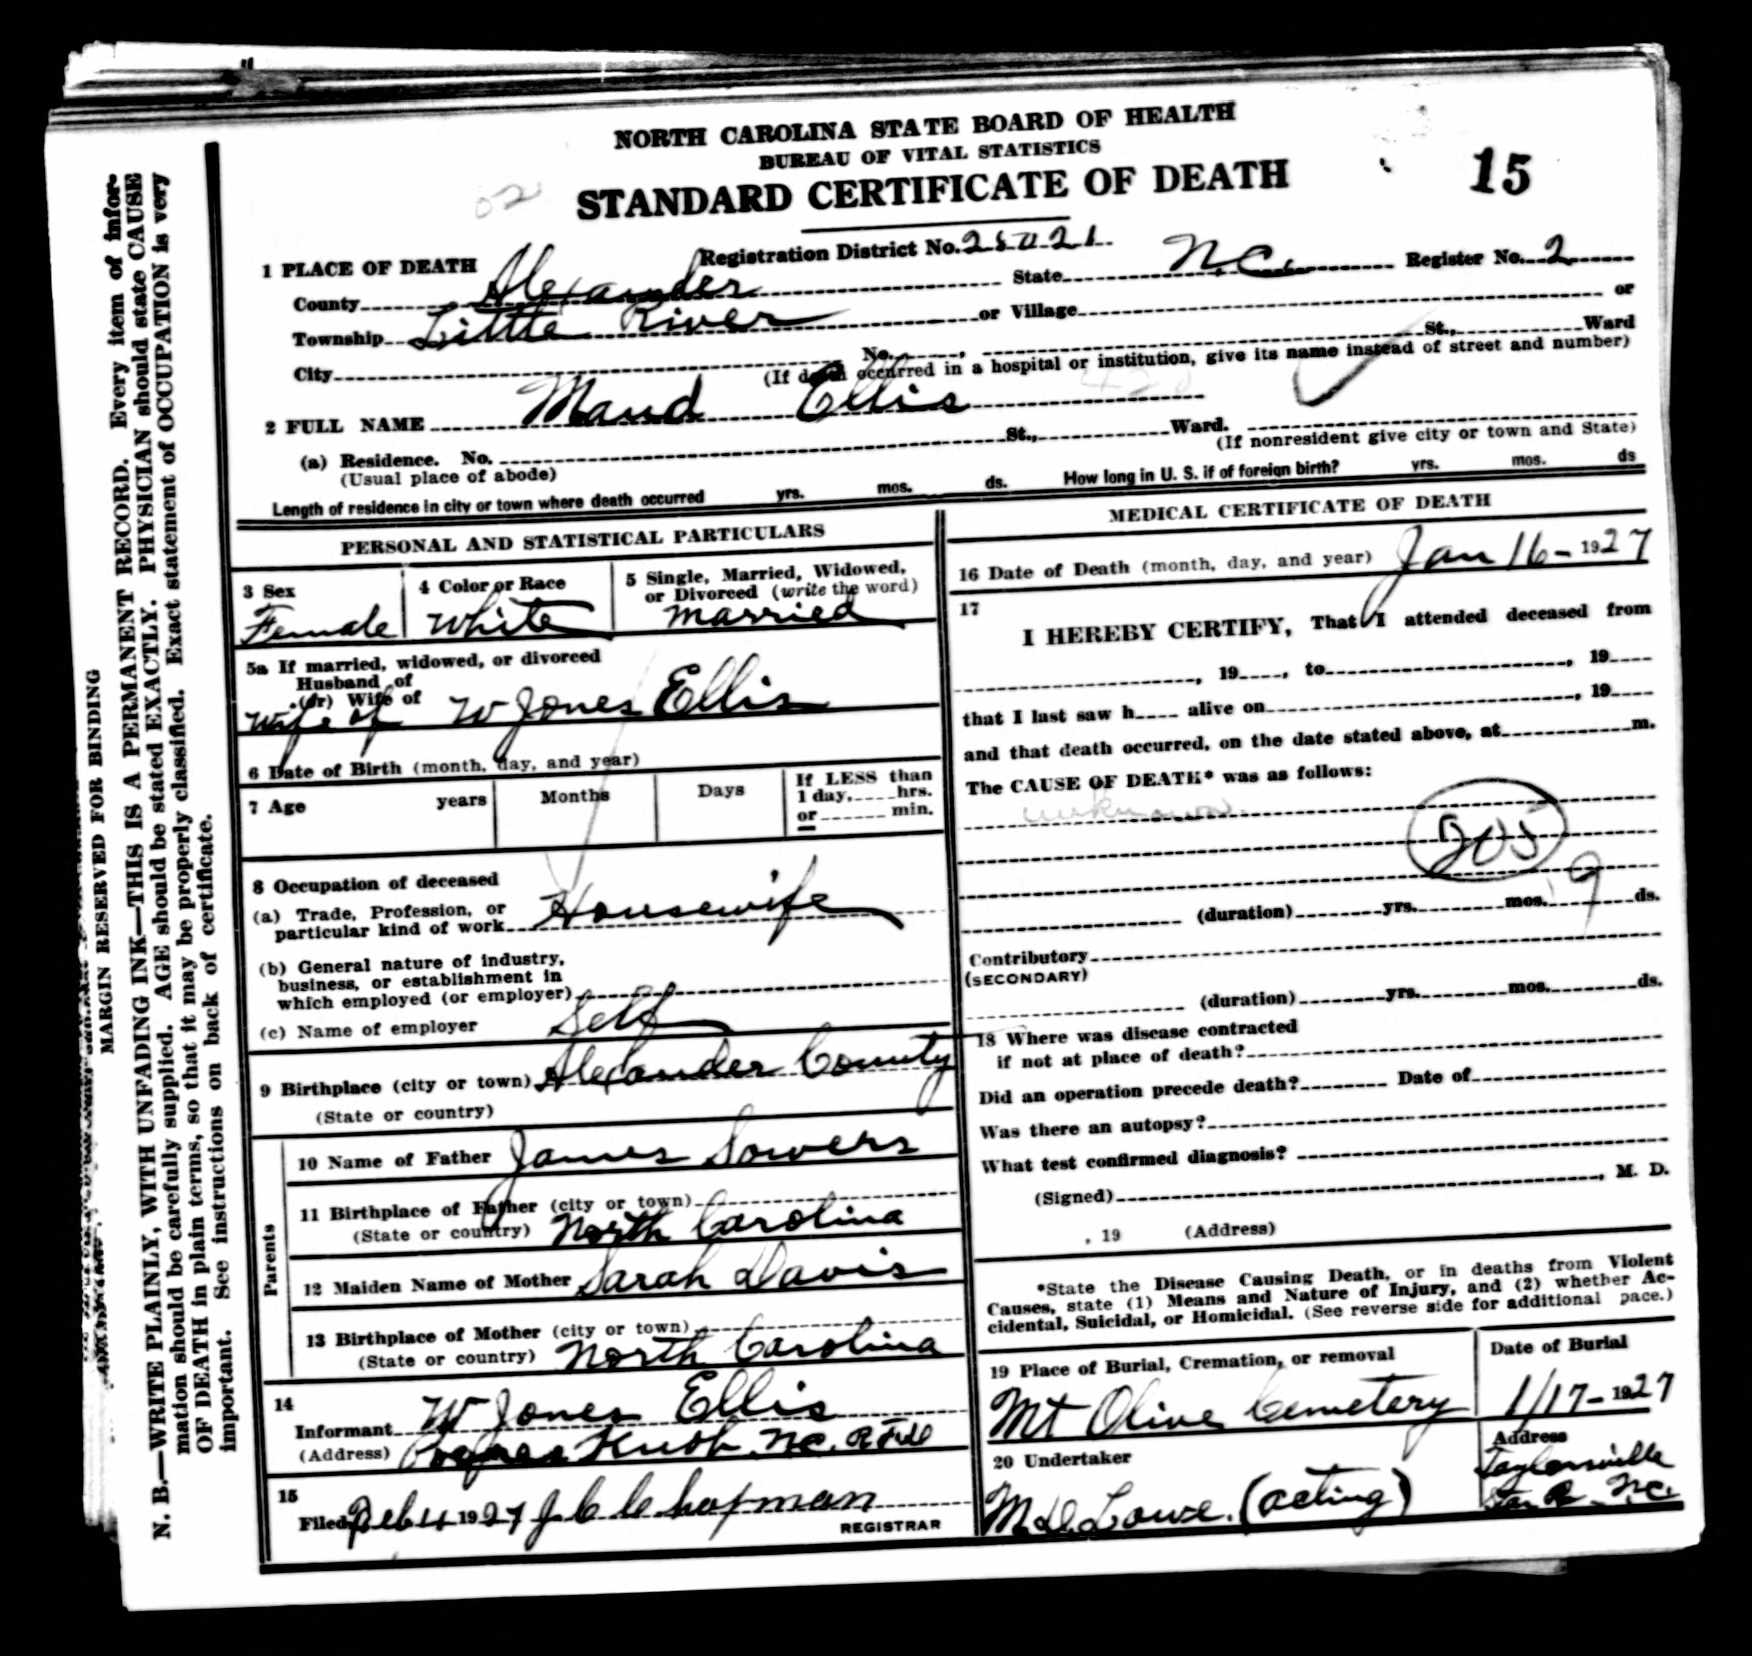 NORTH CAROLINA STATE BOARD OF HEALTH
BUREAU OF VITAL STATISTICS
STANDARD CERTIFICATE OF DEATH
15
1 PLACE OF DEATH Registration District No.
County Alexander State N.C. Register No. 2
Township Little River or Village or
City No. , St., Ward
(If death occurred in a hospital or institution, give its name instead of street and number)
2 FULL NAME Maud Ellis
(a) Residence. No. St., Ward.
(Usual place of abode) (If nonresident give city or town and State)
Length of residence in city or town where death occurred yrs. mos. ds. How long in U. S. if of foreign birth? yrs. mos. ds
PERSONAL AND STATISTICAL PARTICULARS
3 Sex 4 Color or Race 5 Single, Married, Widowed,
or Divorced (write the word)
Female White married
5a If married, widowed, or divorced
Husband of
(or) Wife of
Wife of W Jones Ellis
6 Date of Birth (month, day, and year)
7 Age years Months Days If LESS than
1 day, hrs.
or min.
8 Occupation of deceased
(a) Trade, Profession, or
particular kind of work Housewife
(b) General nature of industry,
business, or establishment in
which employed (or employer)
(c) Name of employer Self
9 Birthplace (city or town) Alexander County
(State or country)
Parents
10 Name of Father James Sowers
11 Birthplace of Father (city or town)
(State or country) North Carolina
12 Maiden Name of Mother Sarah Davis
13 Birthplace of Mother (city or town)
(State or country) North Carolina
14
Informant W Jones Ellis
(Address) N.C.
15
Filed Feb 4 1927 J C Chapman
REGISTRAR
MEDICAL CERTIFICATE OF DEATH
16 Date of Death (month, day, and year) Jan 16- 1927
17
I HEREBY CERTIFY, That I attended deceased from
, 19 , to , 19
that I last saw h alive on , 19
and that death occurred, on the date stated above, at m.
The CAUSE OF DEATH* was as follows:
unknown.
205
9
(duration) yrs. mos. ds.
Contributory
(SECONDARY)
(duration) yrs. mos. ds.
18 Where was disease contracted
if not at place of death?
Did an operation precede death? Date of
Was there an autopsy?
What test confirmed diagnosis?
(Signed) , M. D.
, 19 (Address)
*State the Disease Causing Death, or in deaths from Violent
Causes, state (1) Means and Nature of Injury, and (2) whether Ac-
cidental, Suicidal, or Homicidal. (See reverse side for additional pace.)
19 Place of Burial, Cremation, or removal Date of Burial
Mt Olive Cemetery 1/17- 1927
20 Undertaker Address
M.D. Lowe. (acting) Taylorsville
N.C.
MARGIN RESERVED FOR BINDING
N. B.—WRITE PLAINLY, WITH UNFADING INK—THIS IS A PERMANENT RECORD. Every item of infor-
mation should be carefully supplied. AGE should be stated EXACTLY. PHYSICIAN should state CAUSE
OF DEATH in plain terms, so that it may be properly classified. Exact statement of OCCUPATION is very
important. See instructions on back of certificate.